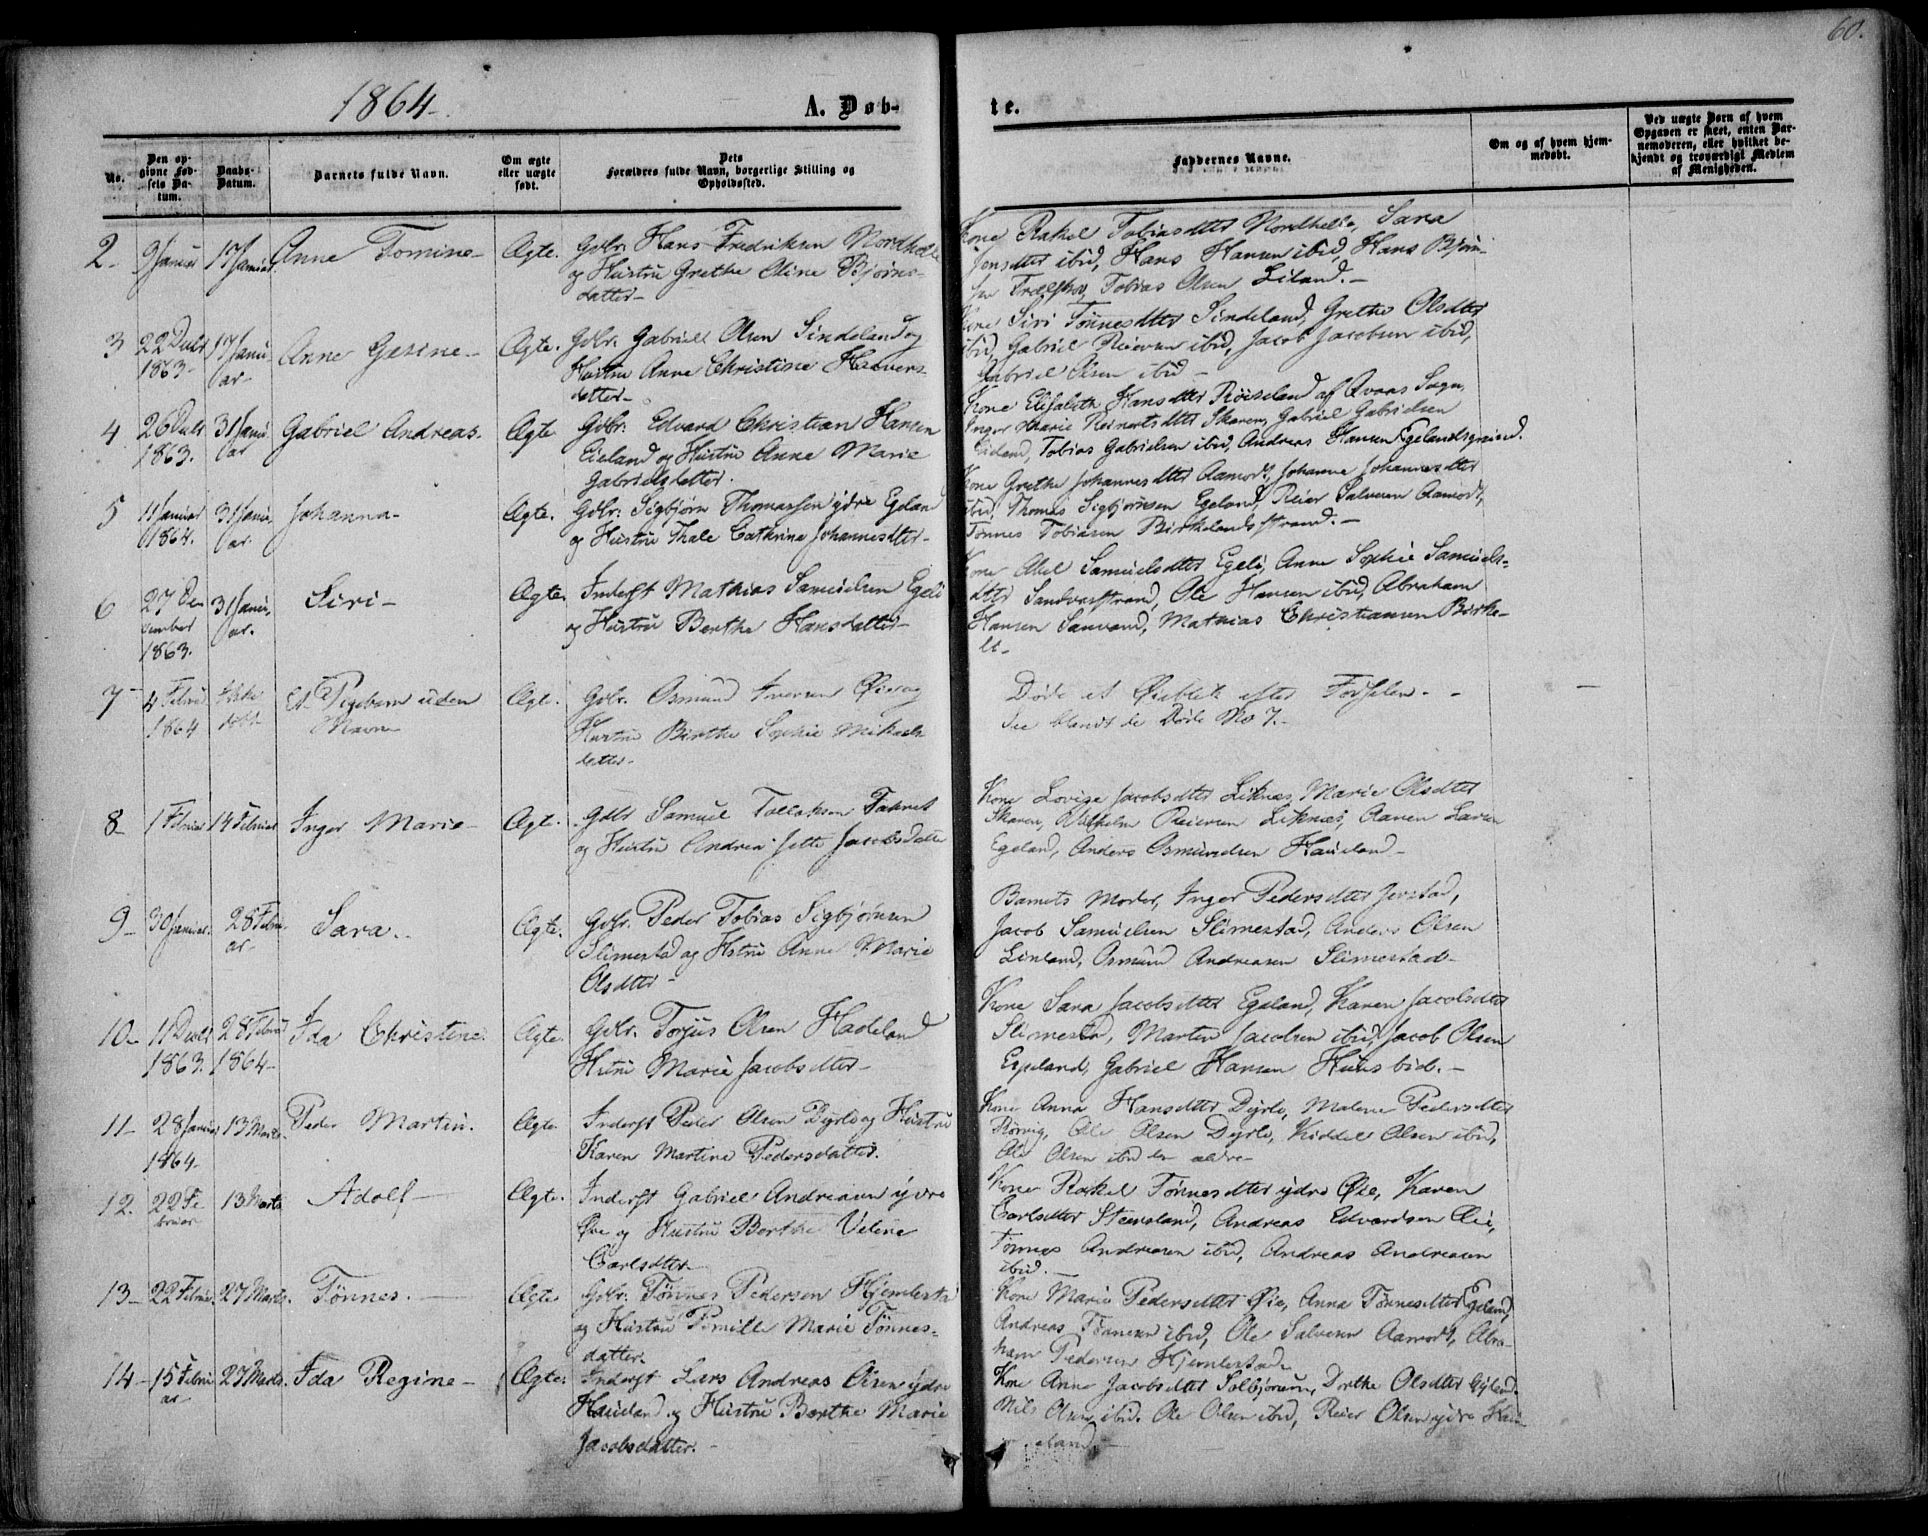 1864.
A. Døb-
te.
60.
No.
Den op-
givne Fød-
sels Da-
tum.
Daabs-
Datum.
Barnets fulde Navn.
Om ægte
eller uægte
født.
Dets
Forældres fulde Navn, borgerlige Stilling og
Opholdssted.
Faddernes Navne.
Om og af hvem hjem-
medøbt.
Ved uægte Børn af hvem
Opgaven er skeet, enten Bar-
nemoderen, eller hvilket be-
kjendt og troværdigt Medlem
af Menigheden.
2 9 Januar 17 Januar Anne Tomine Ægte. Gdbr. Hans Fredriksen Nordhelle
og Hustru Grethe Oline Bjørns-
datter
Kone Rakel Tobiasdtter Nordhelle, Sara
Jensdtter ibid, Hans Hansen ibid, Hans Bjørn-
sen Tobias Olsen Eiland.
3 22 Decbr 1863 17 Janu-
ar Anne Gesine Ægte. Gdbr. Gabriel Olsen Sindeland og
Hustru Anne Christine
datter
Kone Siri Tønnesdtter Sindeland, Grethe Olsdtter
ibid, Gabriel Reiersen ibid, Jacob Jacobsen ibid,
Gabriel Olsen ibid
4 26 Decbr 1863. 31 Janu-
ar Gabriel Andreas. Ægte. Gdbr. Edvard Christian Hansen
Eieland og Hustru Anne Marie
Gabrielsdatter.
Kone Elisabeth Hansdtter Røiseland af Qvaas Sogn,
Inger Marie Reinertsdtter Skaren, Gabriel Gabrielsen
Eieland, Tobias Gabrielsen ibid, Andreas Hansen Egelandsgrænd.
5 11 Januar 1864. 31 Janu-
ar. Johanna Ægte. Gdbr. Sigbjørn Thomassen ydre Egeland
og Hustru Thale Cathrine Johannesdtter
Kone Grethe Johannesdtter Aamodt, Johanne Johannesdtter
ibid, Thomas Sigbjørnsen Egeland, Reier Salvesen Aamodt,
Tønnes Tobiasen Birkelandsstrand.
6 27 De-
cember
1863. 31 Janu-
ar. Siri Ægte. Inderst Mathias Samuelsen Egeli
og Hustru Berthe Hansdatter
Kone Abel Samuelsdtter Egeli, Anne Sophie Samuels-
dtter Ole Hansen ibid, Abraham
Hansen Mathias Christiansen Birke-
li.
7 4 Febru 1864 Et Pigebarn uden
Navn Ægte. Gdbr. Osmund Iversen Øie og
Hustru Birthe Sophie Mikaels
datter
Døde et Øieblik efter Fødselen.
See blandt de Døde No 7.
8 1 Februar 14 Februar Inger Marie Ægte. Gdbr Samuel Tollaksen
og Hustru Andrea Jette Jacobsdatter
Kone Lovise Jacobsdtter Liknes, Marie Olsdtter
Skaren, Vilhelm Reiersen Liknes, Aanen Larsen
Egeland, Anders Osmundsen Haueland
9 30 Januar. 28 Febru-
ar Sara. Ægte. Gdbr. Peder Tobias Sigbjørnsen
Slimestad og Hstru Anne Marie
Olsdtter
Barnets Moder, Inger Pedersdtter Jerstad,
Jacob Samuelsen Slimestad, Anders Olsen
Linland, Osmund Andreasen Slimestad
10 11 Decbr 1863. 28 Febru 1864 Ida Christine. Ægte. Gdbr. Torjus Olsen Hadeland
Hustru Marie Jacobsdtter
Kone Sara Jacobsdtter Egeland, Karen Jacobsdtter
Slimestad, Marten Jacobsen ibid, Jacob Olsen
Espeland, Gabriel Hansen
11 28 Januar 1864 13 Marts. Peder Martin. Ægte. Inderst Peder Olsen Dyrlo og Hustru
Karen Martine Pedersdatter.
Kone Anna Hansdtter Dyrlo, Malene Pedersdtter
Rørvig, Ole Olsen Dyrlo, Kiddel Olsen ibid,
Ole Olsen ibid den ældre
12. 22 Fe
bruar 13 Marts Adolf Ægte. Inderst Gabriel Andreasen ydre
Øie og Hustru Berthe Veline
Carlsdtter
Kone Rakel Tønnesdtter ydre Øie, Karen
Carlsdtter Steensland, Andreas Edvardsen Øie,
Tønnes Andreasen ibid, Andreas Andreasen
ibid.
13 22 Februar. 27 Marts. Tønnes. Ægte Gdbr. Tønnes Pedersen Hjemlestad
og Hustru Pernille Marie Tønnes-
datter.
Kone Marie Pedersdtter Øie, Anna Tønnesdtter Egeland,
Andreas Tønnesen ibid, Ole Salvesen Aamodt, Abra-
ham Pedersen Hjemlestad.
14 15 Febru
ar 27 Marts. Ida Regine Ægte. Inderst Lars Andreas Olsen ydre
Haueland og Hustru Berthe Marie
Jacobsdatter.
Kone Anne Jacobsdtter Solbjørnsen, Dorthe Olsdtter
Nils Olsen ibid. Ole Olsen ibid, Reier Olsen ydre Hau-
eland.